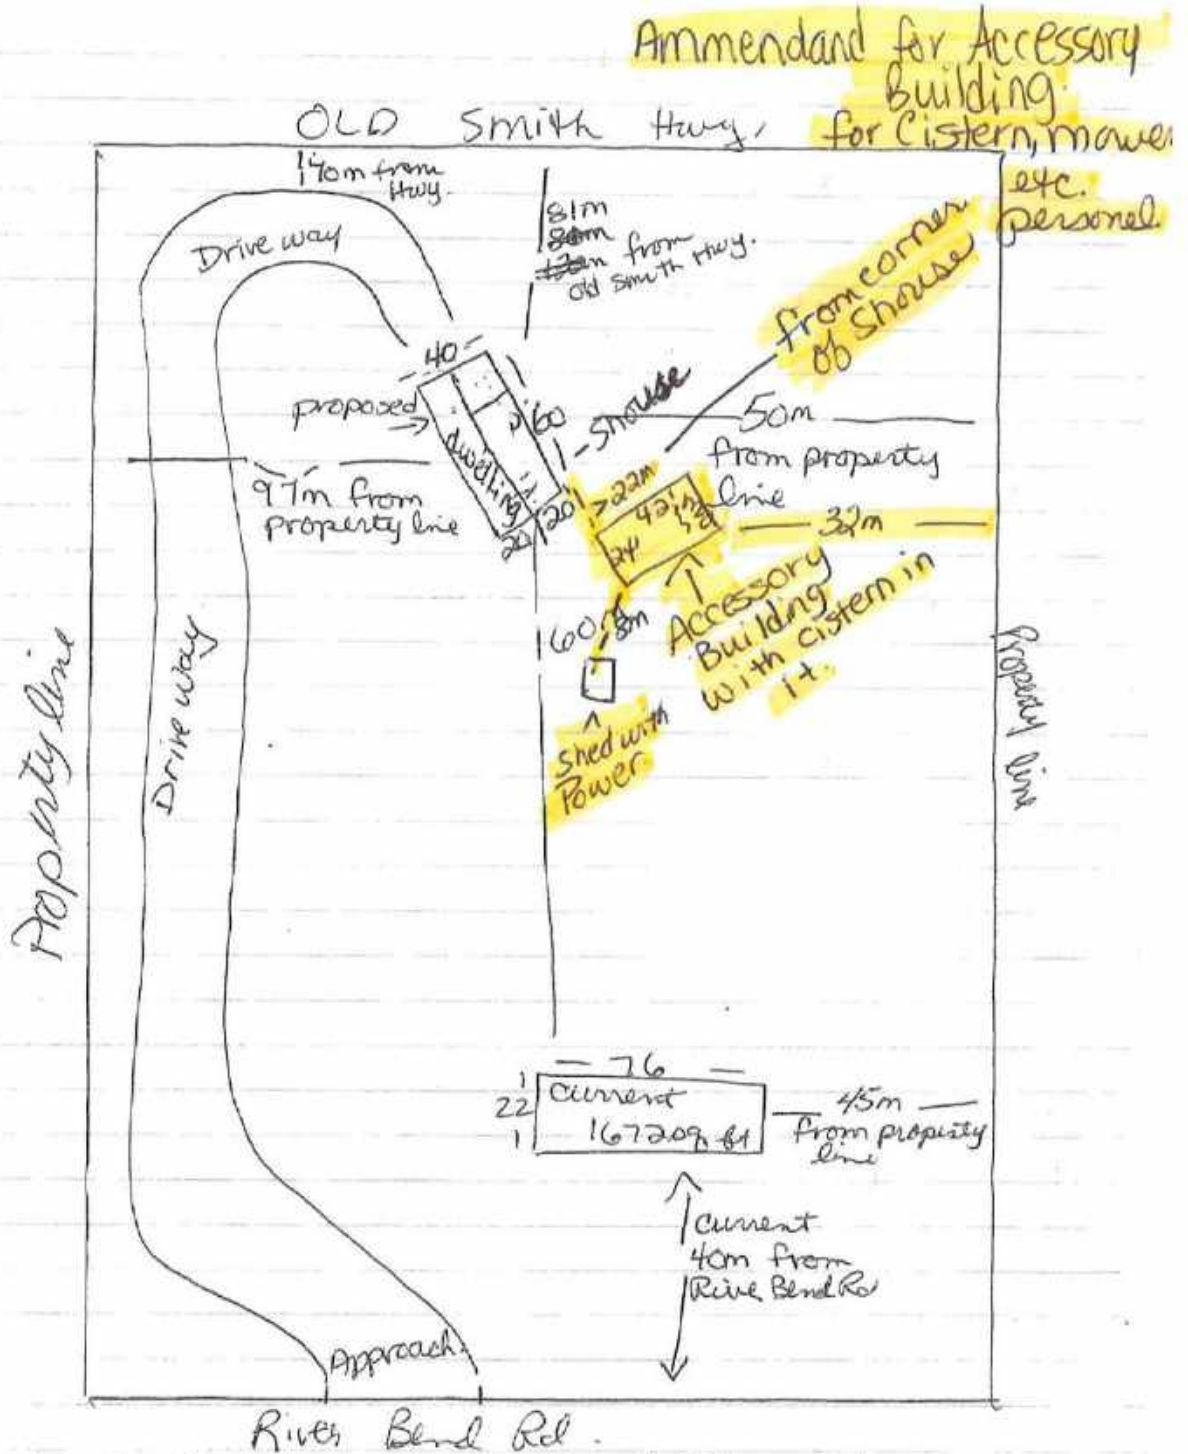 Ammendand for Accessory
Building
for Cistern, mower
etc.
personel.
OLD Smith Hwy.
40m from
Hwy.
Drive way
81m
from
old Smith Hwy.
from corner
of shouse
40
proposed
dwelling
60
shouse
50m
from property
line
97m from
property line
20
20
22m
42'
24'
32m
Accessory
Building
with cistern in
it.
160m
8m
shed with
Power.
Property line
Drive way
Property line
76
22
Current
1672 sq ft
45m
from property
line
Current
40m from
River Bend Rd
Approach
River Bend Rd.